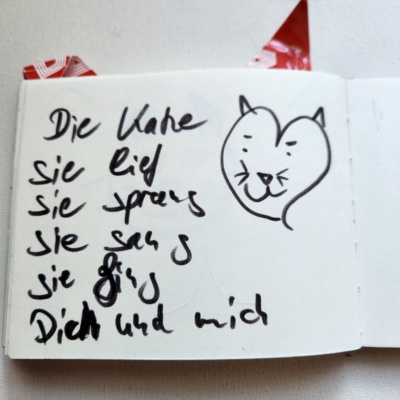 Die Katze
sie lief
sie sprang
sie sang
sie fing
Dich und mich